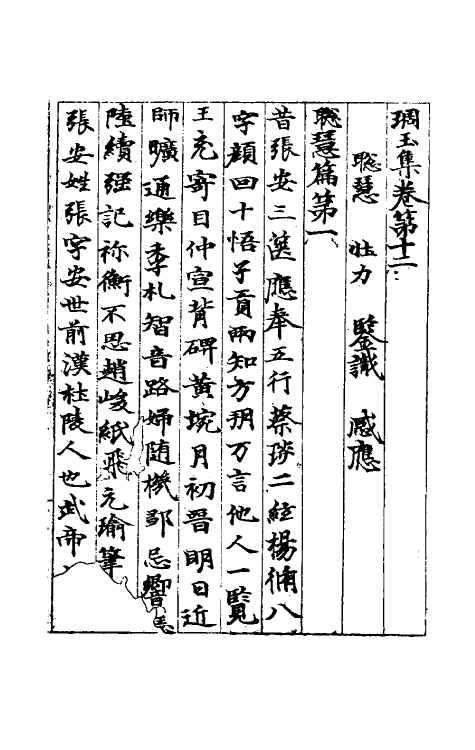 琱玉集卷第十二
聡慧 壮力 鑒識 感應
聡慧篇第一
昔張安三篋應奉五行蔡琰二紙楊脩八
字顔回十悟子貢兩知方朔万言他人一覧
王充寄目仲宣背碑黃琬月初晋明日近
師曠通樂季札智音路婦随機鄒忌響
陸續强記祢衡不思趙峻紙飛元瑜筆
張安姓張字安世前漢杜陵人也武帝